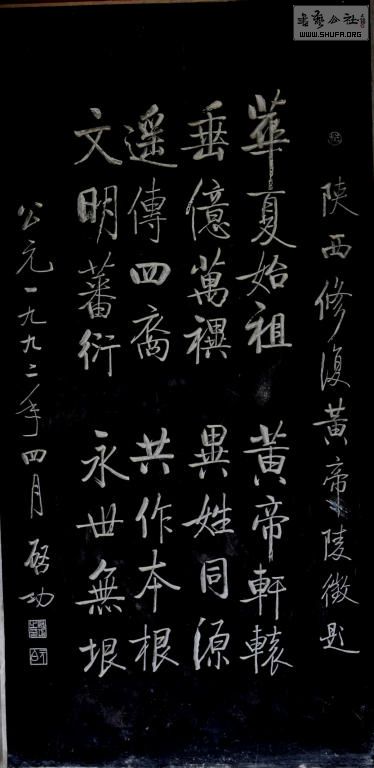 陝西修復黃帝陵徵題
華夏始祖 黃帝軒轅
垂億萬禩 異姓同源
遥傳四裔 共作本根
文明蕃衍 永世無垠
公元一九九二年四月 啓功
書藝公社
WWW.SHUFA.ORG